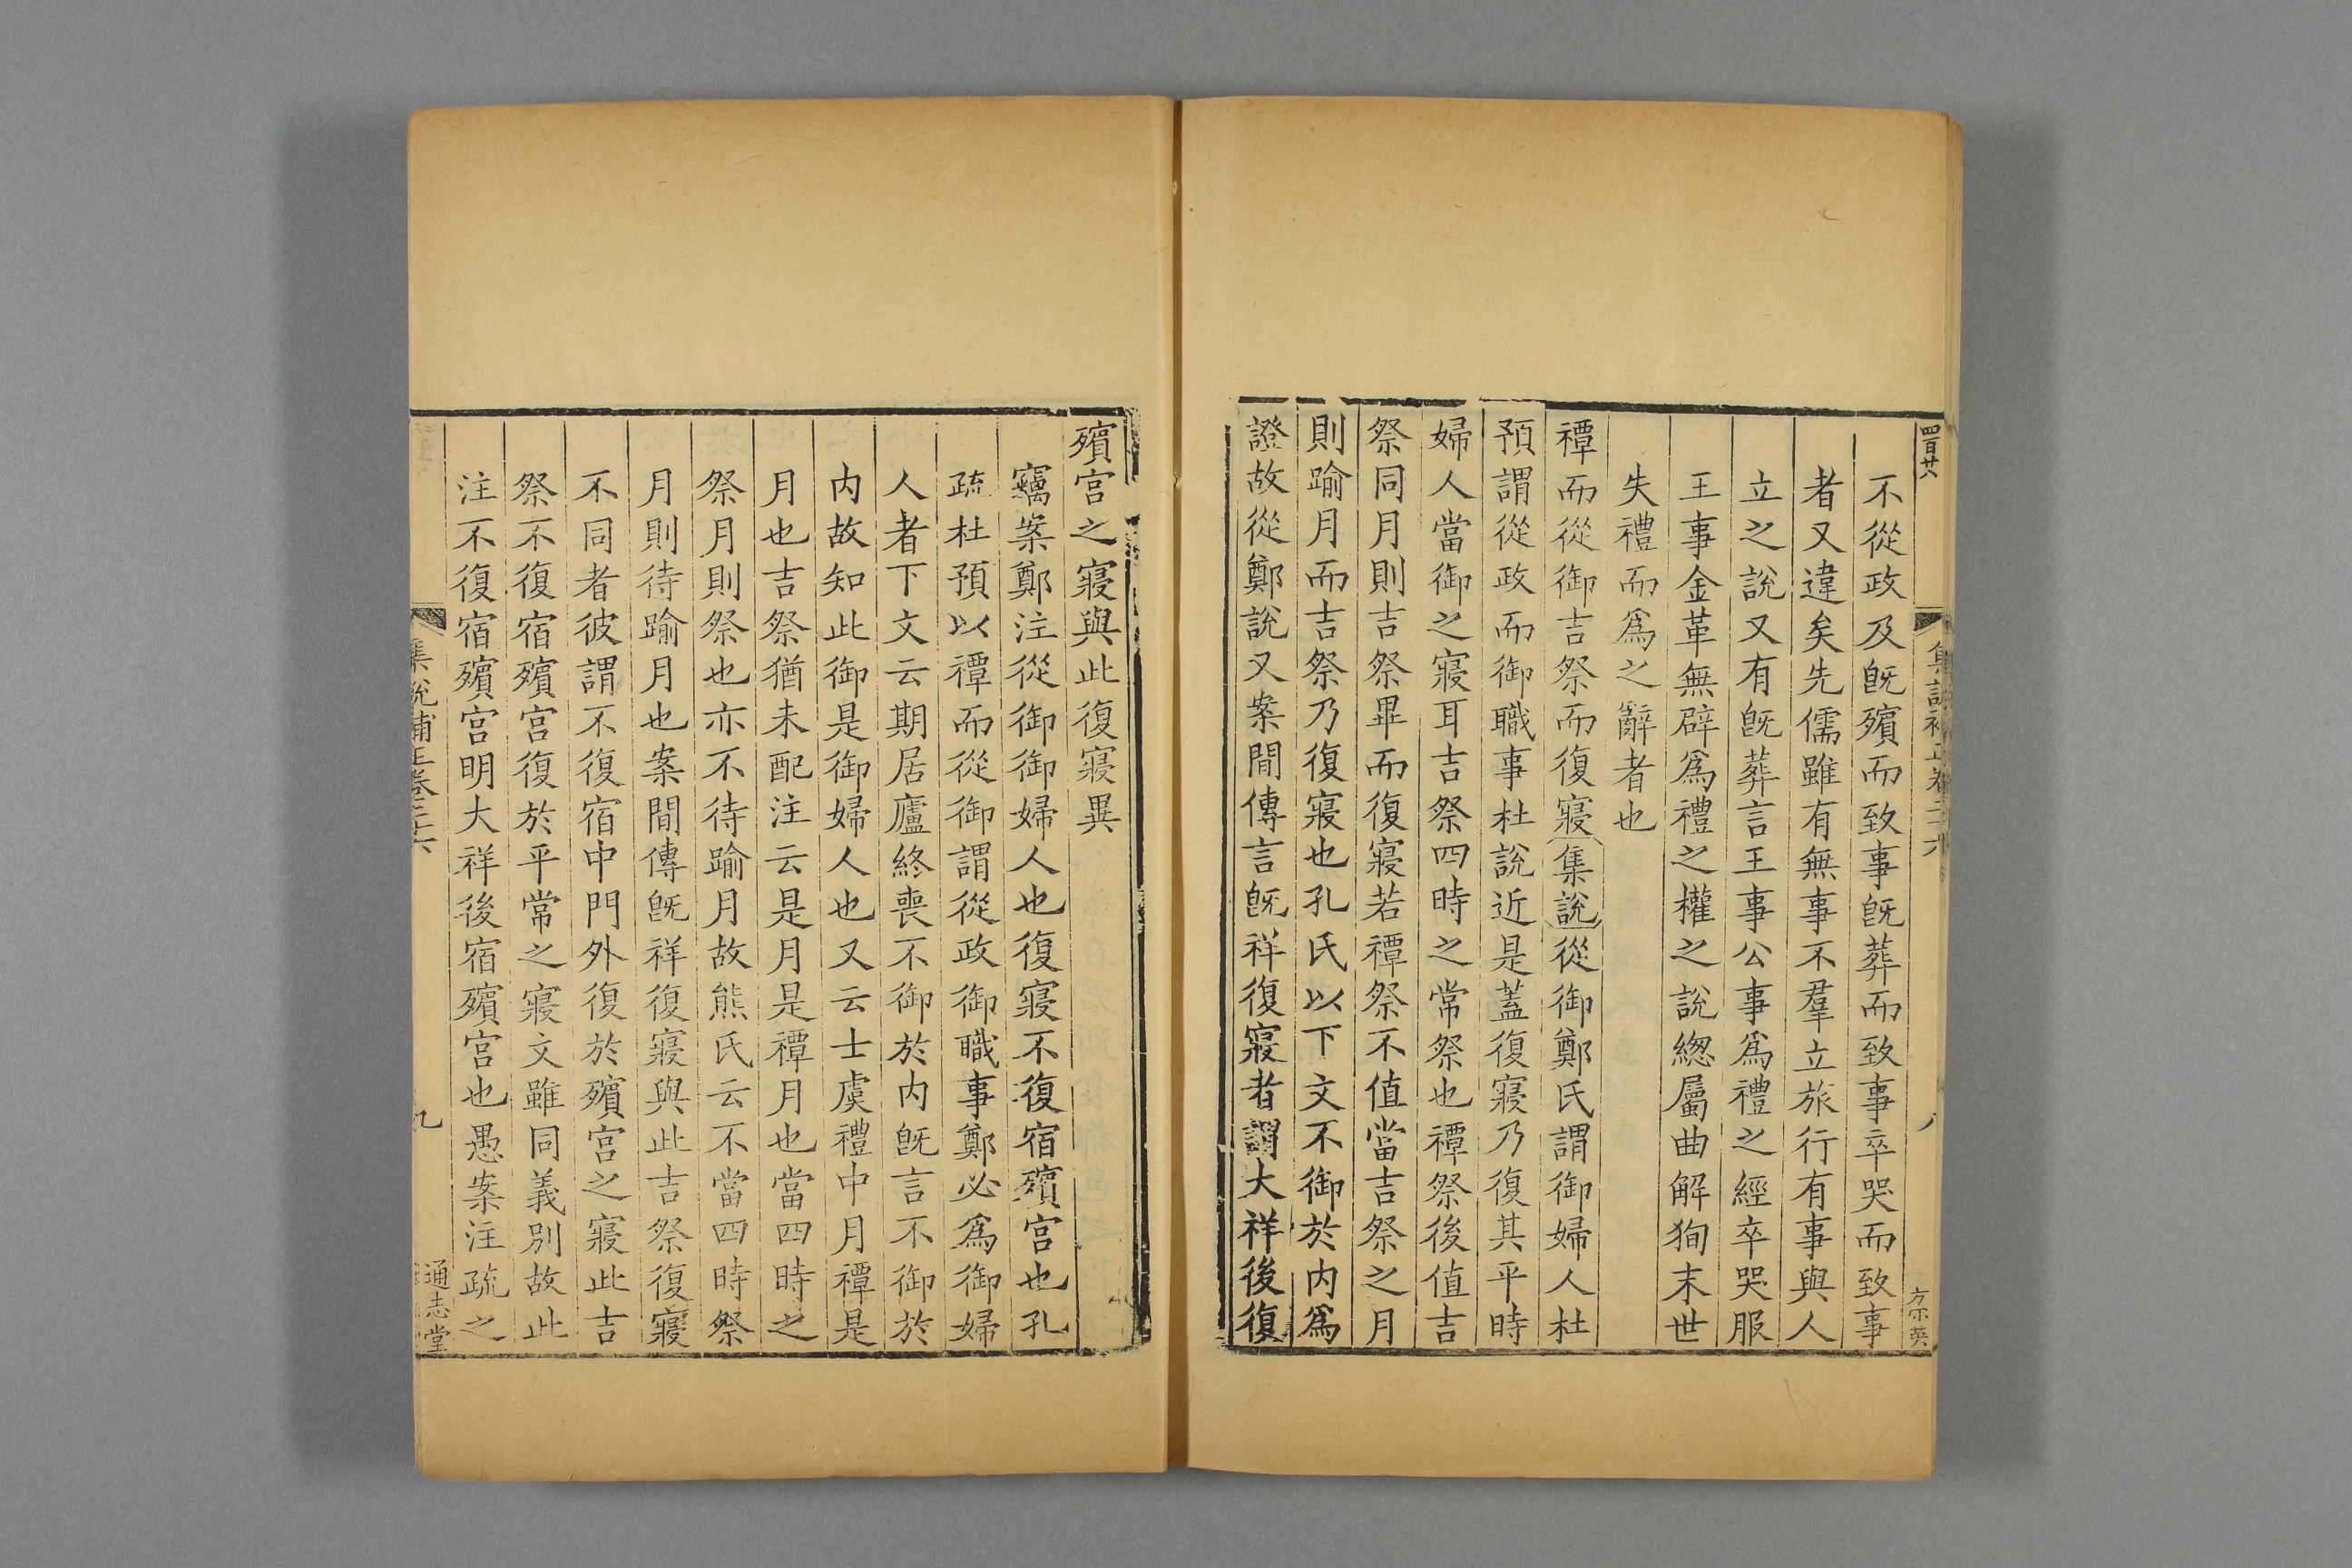 四百廿六
集說補正卷二十六
八
方宗英
不從政及旣殯而致事旣葬而致事卒哭而致事
者又違矣先儒雖有無事不羣立旅行有事與人
立之說又有旣葬言王事公事爲禮之經卒哭服
王事金革無辟爲禮之權之說緫屬曲解狥末世
失禮而爲之辭者也
禫而從御吉祭而復寢集說從御鄭氏謂御婦人杜
預謂從政而御職事杜說近是蓋復寢乃復其平時
婦人當御之寢耳吉祭四時之常祭也禫祭後值吉
祭同月則吉祭畢而復寢若禫祭不值當吉祭之月
則踰月而吉祭乃復寢也孔氏以下文不御於内爲
證故從鄭說又案間傳言旣祥復寢者謂大祥後復
殯宮之寢與此復寢異
竊案鄭注從御御婦人也復寢不復宿殯宮也孔
疏杜預以禫而從御謂從政御職事鄭必爲御婦
人者下文云期居廬終喪不御於内旣言不御於
内故知此御是御婦人也又云士虞禮中月禫是
月也吉祭猶未配注云是月是禫月也當四時之
祭月則祭也亦不待踰月故熊氏云不當四時祭
月則待踰月也案間傳旣祥復寢與此吉祭復寢
不同者彼謂不復宿中門外復於殯宮之寢此吉
祭不復宿殯宮復於平常之寢文雖同義別故此
注不復宿殯宮明大祥後宿殯宮也愚案注疏之
集說補正卷二十六
九
通志堂